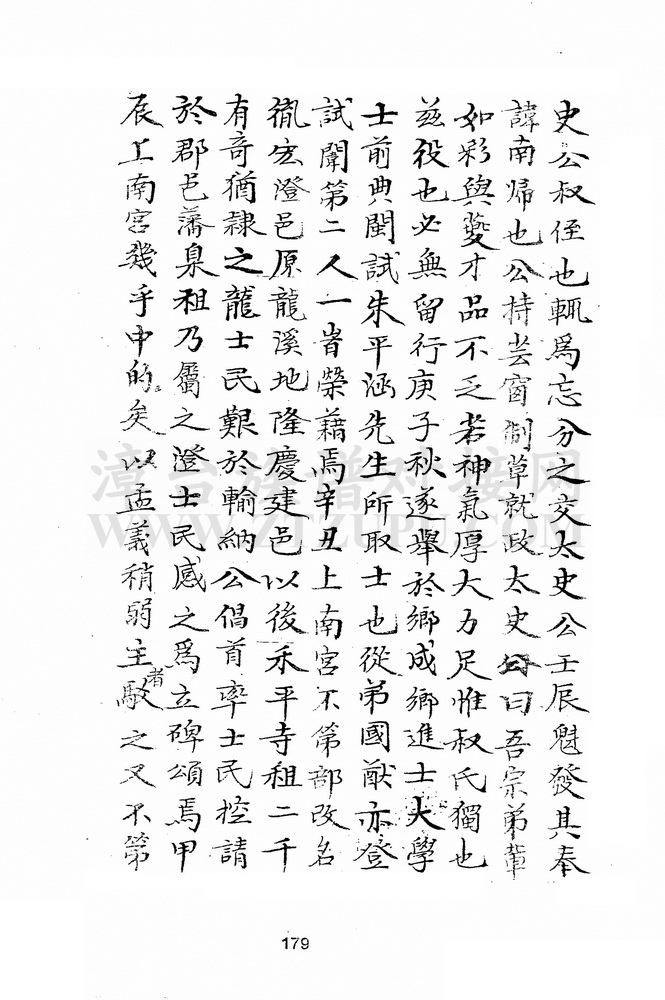 史公叔侄也輒爲忘分之交太史公壬辰魁發其奉
諱南歸也公持芸窗制草就政太史公曰吾宗弟輩
如彩與夔才品不乏若神氣厚大力足惟叔氏獨也
茲役也必無留行庚子秋遂舉於鄉成鄉進士大學
士前典閩試朱平涵先生所取士也從弟國猷亦登
試闈第二人一省榮藉焉辛丑上南宮不第部改名
胤宏澄邑原龍溪地隆慶建邑以後禾平寺租二千
有奇猶隷之龍士民艱於輸納公倡首率士民控請
於郡邑藩臬租乃屬之澄士民感之爲立碑頌焉甲
辰上南宮幾乎中的矣以孟義稍弱主者駁之又不第
漳台族譜对接网
WWW.ZTZUPU.COM
179